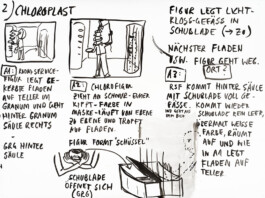 2) CHLOROPLAST
FIGUR LEGT LICHT-
KLOSS-GEFÄSS IN
SCHUBLADE (→ Zu)
NÄCHSTER FLADEN
USW. FIGUR GEHT WEG.
A1: ROOMSERVICE-
FIGUR LEGT GE-
KERBTE FLADEN
AUF TELLER IM
GRANUM UND GEHT
HINTER GRANUM
SÄULE RECHTS
GRG HINTER
SÄULE
A2: CHLOROFIGUR
ZIEHT AN SCHNUR-EIMER
KIPPT-FARBE IN
MASKE-LÄUFT VON EBENE
ZU EBENE UND TROPFT
AUF FLADEN.
FIGUR FORMT "SCHÜSSEL"
SCHUBLADE
ÖFFNET SICH
(GRG)
A3: ORT?
RSF KOMMT HINTER SÄULE
MIT SCHUBLADE VOLL GE-
FÄSSE. KOMMT WIEDER
SCHUBLADE KEIN LEER,
WEISSE
FARBE, RÄUMT
AUF UND WIE
IN A1 LEGT
FLADEN AUF
TELLER